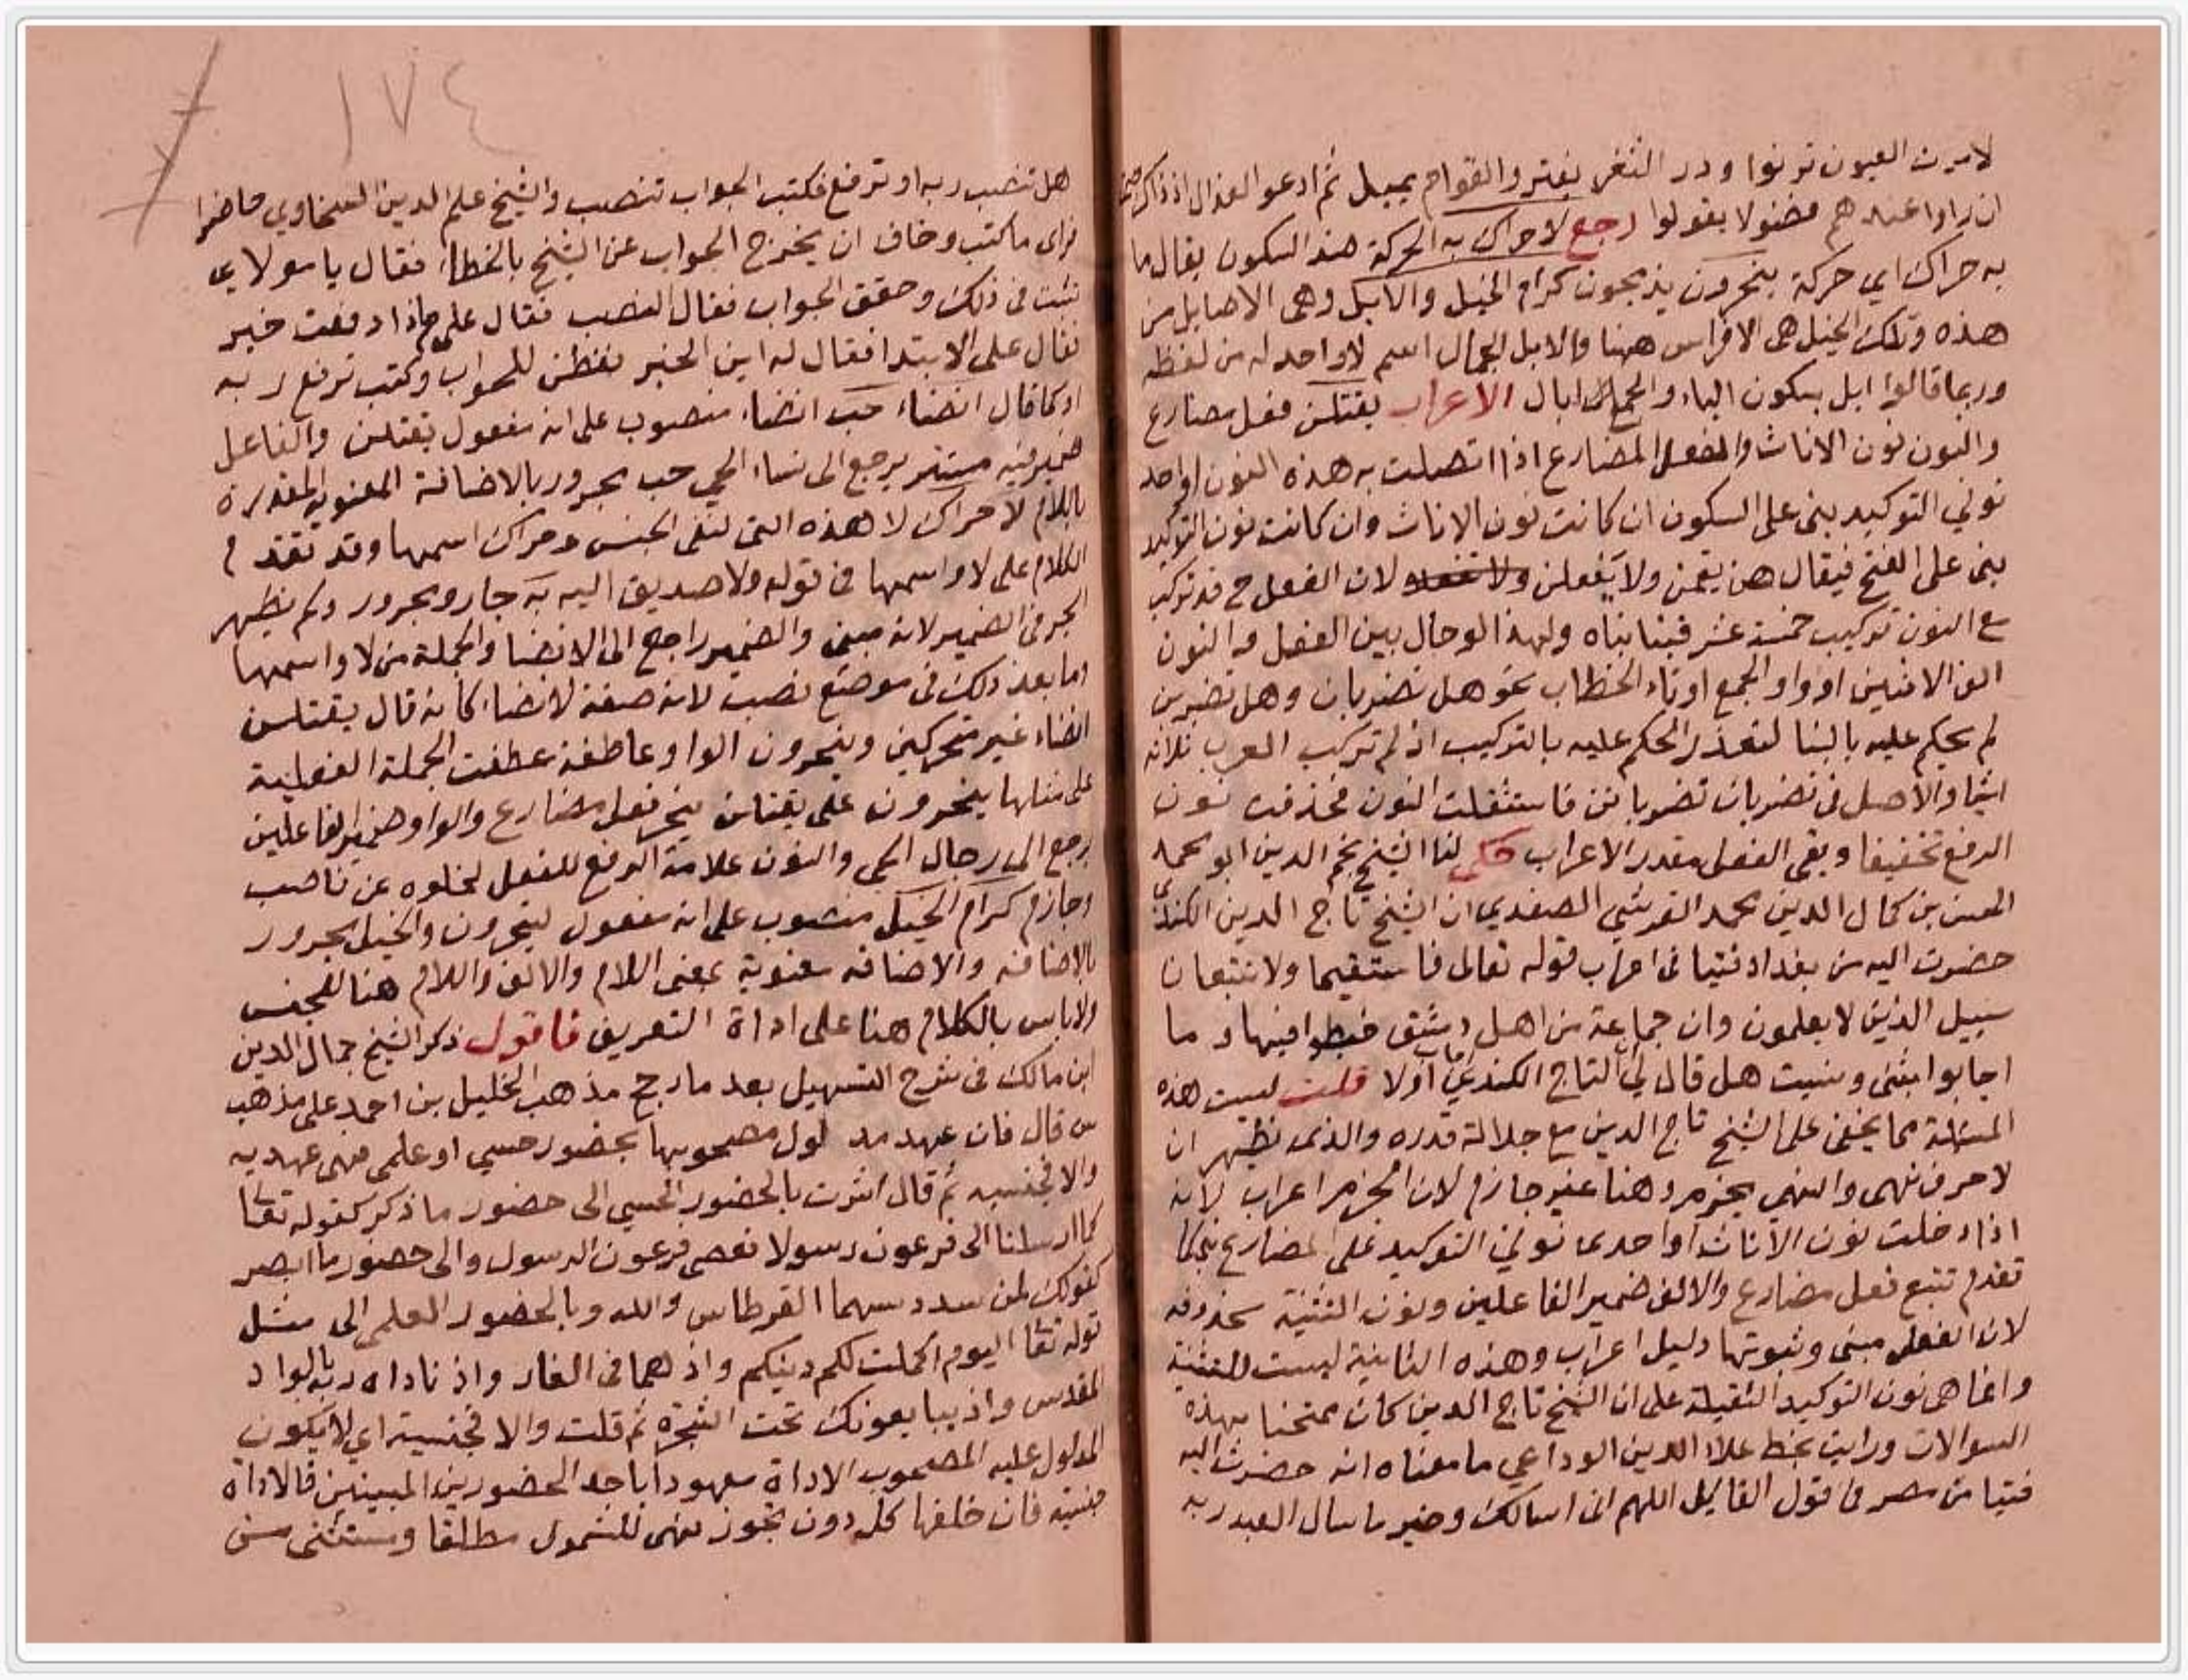 لاميرت العيون ترنوا ودر الثغر يفتر والقوام يميل ثم ادعو العذال اذ ذاك
ان راوا عندهم فضولا يقولوا رجع لا حراك به الحركة ضد السكون يقال ما
به حراك اي حركة ينحرون يذبحون كرام الخيل والابل وهي الاصايل من
هذه وتلك الخيل هي الافراس ههنا والابل الجمال اسم لا واحد له من لفظه
وربما قالوا ابل بسكون الباء والجمع ابال الاعراب يقتلن فعل مضارع
والنون نون الاناث والفعل المضارع اذا اتصلت به هذه النون او احد
نوني التوكيد بنى على السكون ان كانت نون الاناث وان كانت نون التوكيد
بنى على الفتح فيقال هن يقمن ولا يفعلن لان الفعل ح قد تركب
مع النون تركيب خمسة عشر فبنا بناه ولهذا لو حال بين الفعل والنون
الف الاثنين او واو الجمع او تاء الخطاب نحو هل تضربان وهل تضربن
لم يحكم عليه بالبنا لتعذر الحكم عليه بالتركيب اذ لم تركب العرب ثلاثة
اشيا والاصل في تضربان تضربانن فاستثقلت النون فحذفت نون
الرفع تخفيفا وبقى الفعل مقدر الاعراب حكى لنا الشيخ نجم الدين ابو محمد
الحسن بن كمال الدين محمد القرشي الصفدي ان الشيخ تاج الدين الكندي
حضرت اليه من بغداد فتيا في اعراب قوله تعالى فاستقيما ولا تتبعان
سبيل الذين لا يعلمون وان جماعة من اهل دمشق خبطوا فيها وما
اجابوا بشى ونسيت هل قال لي التاج الكندي اجاب اولا قلت ليست هذه
المسئلة مما يخفى على الشيخ تاج الدين مع جلالة قدره والذي نظهر ان
لا حرف نهى والنهي يجزم وهنا غير جازم لان الجزم اعراب لانه
اذا دخلت نون الاناث او احدى نوني التوكيد على المضارع بنى كما
تقدم تتبع فعل مضارع والالف ضمير الفاعلين ونون التثنية محذوفه
لان الفعل مبنى وثبوتها دليل اعراب وهذه الثانية ليست للتثنية
وانما هي نون التوكيد الثقيلة على ان الشيخ تاج الدين كان ممتحنا بهذه
السوالات ورايت بخط علاء الدين الوداعي ما معناه انه حضرت اليه
فتيا من مصر في قول القايل اللهم اني اسالك وخير ما سال العبد ربه
١٧٤
هل تنصب ربه او ترفع فكتب الجواب تنصب والشيخ علم الدين السخاوي حاضرا
فراى ما كتب وخاف ان يخرج الجواب عن الشيخ بالخطا، فقال يا مولاي
تثبت في ذلك وحقق الجواب فقال النصب فقال على ماذا رفعت خير
فقال على الابتدا فقال له اين الخبر ففطن للجواب وكتب ترفع ربه
او كما قال انضاء حب انضاء منصوب على انه مفعول يقتلن والفاعل
ضمير فيه مستتر يرجع الى نساء الحي حب مجرور بالاضافة المعنوية المقدرة
باللام لا حراك لا هذه التي لنفي الجنس وحراك اسمها وقد تقدم
الكلام على لا واسمها في قوله ولا صديق اليه به جار ومجرور ولم يظهر
الجر في الضمير لانه مبنى والضمير راجع الى الانضا والجملة من لا واسمها
وما بعد ذلك في موضع نصب لانه صفة لانضا، كانه قال يقتلن
انضاء غير متحركين وينحرون الواو عاطفة عطفت الجملة الفعلية
على مثلها ينحرون على يقتلن ينحر فعل مضارع والواو ضمير الفاعلين
يرجع الى رجال الحي والنون علامة الرفع للفعل لخلوه عن ناصب
وجازم كرام الخيل منصوب على انه مفعول لينحرون والخيل مجرور
بالاضافة والاضافة معنوية بمعنى اللام والالف واللام هنا للجنس
ولا باس بالكلام هنا على اداة التعريف فاقول ذكر الشيخ جمال الدين
ابن مالك في شرح التسهيل بعد ما رجح مذهب الخليل بن احمد على مذهب
س قال فان عهد مدلول مصحوبها بحضور حسي او علمي فهى عهديه
والا فجنسيه ثم قال اشرت بالحضور الحسي الى حضور ما ذكر كقوله تعا
كما ارسلنا الى فرعون رسولا فعصى فرعون الرسول والى حضور ما ابصر
كقولك لمن سدد سهما القرطاس والله وبالحضور العلمي الى مثل
قوله تعا اليوم اكملت لكم دينكم واذ هما في الغار واذ ناداه ربه بالواد
المقدس واذ يبايعونك تحت الشجرة ثم قلت والا فجنسية اي لا يكون
المدلول عليه المصحوب الاداة معهودا باحد الحضورين المبينين فالاداة
جنسية فان خلفها كل دون تجوز فهى للشمول مطلقا ويستثنى من